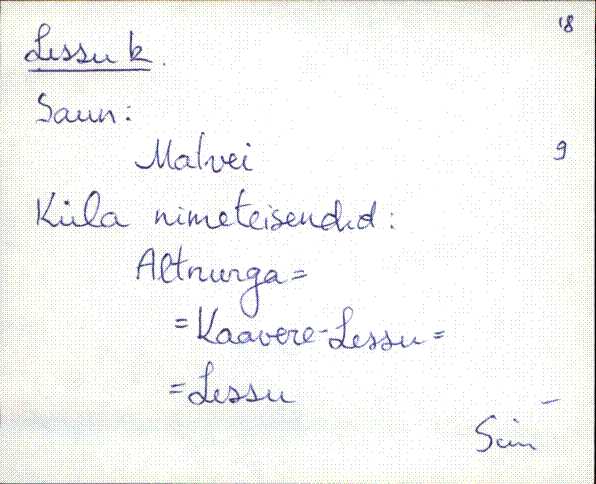 18
Lessu k.
Saun:
Matvei
9
Küla nimeteisendid:
Altnurga=
=Kaavere-Lessu=
=Lessu